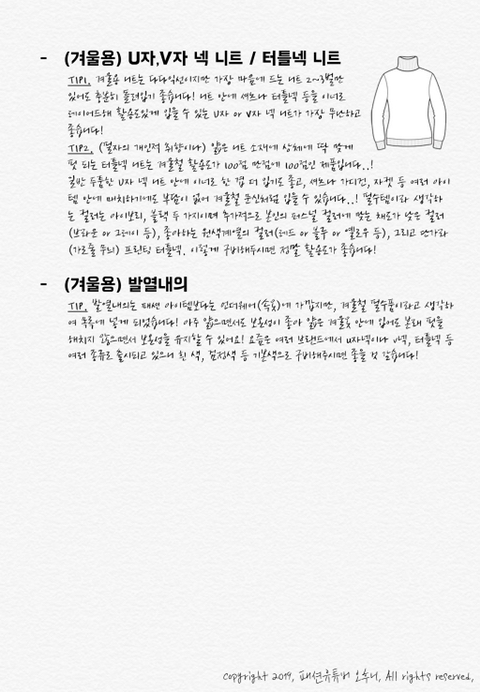 - (겨울용) U자,V자 넥 니트 / 터틀넥 니트
TIP1, 겨울용 니트는 다다익선이지만 가장 마음에 드는 니트 2~3벌만
있어도 충분히 돌려입기 좋습니다! 니트 안에 셔츠나 터틀넥 등을 이너로
레이어드해 활용도있게 입을 수 있는 U자 or V자 넥 니트가 가장 무난하고
좋습니다!
TIP2, (필자의 개인적 취향이나) 얇은 니트 소재에 상체에 딱 맞게
핏 되는 터틀넥 니트는 겨울철 활용도가 100점 만점에 100점인 제품입니다..!
일반 두툼한 U자 넥 니트 안에 이너로 한 겹 더 입기도 좋고, 셔츠나 가디건, 자켓 등 여러 아이
템 안에 매치하기에도 부담이 없어 겨울철 분신처럼 입을 수 있습니다..! 필수템이라 생각하
는 컬러는 아이보리, 블랙 두 가지이며 추가적으로 본인의 퍼스널 컬러에 맞는 채도가 낮은 컬러
(브라운 or 그레이 등), 좋아하는 원색계열의 컬러(레드 or 블루 or 옐로우 등), 그리고 단가라
(가로줄 무늬) 프린팅 터틀넥. 이렇게 구비해두시면 정말 활용도가 좋습니다!
- (겨울용) 발열내의
TIP, 발열내의는 패션 아이템보다는 언더웨어(속옷)에 가깝지만, 겨울철 필수품이라고 생각하
여 목록에 넣게 되었습니다! 아주 얇으면서도 보온성이 좋아 얇은 겨울옷 안에 입어도 본래 핏을
해치지 않으면서 보온성을 유지할 수 있어요! 요즘은 여러 브랜드에서 u자넥이나 v넥, 터틀넥 등
여러 종류로 출시되고 있으니 흰 색, 검정색 등 기본색으로 구비해두시면 좋을 것 같습니다!
copyright 2019, 패션유튜버 오후니, All rights reserved,